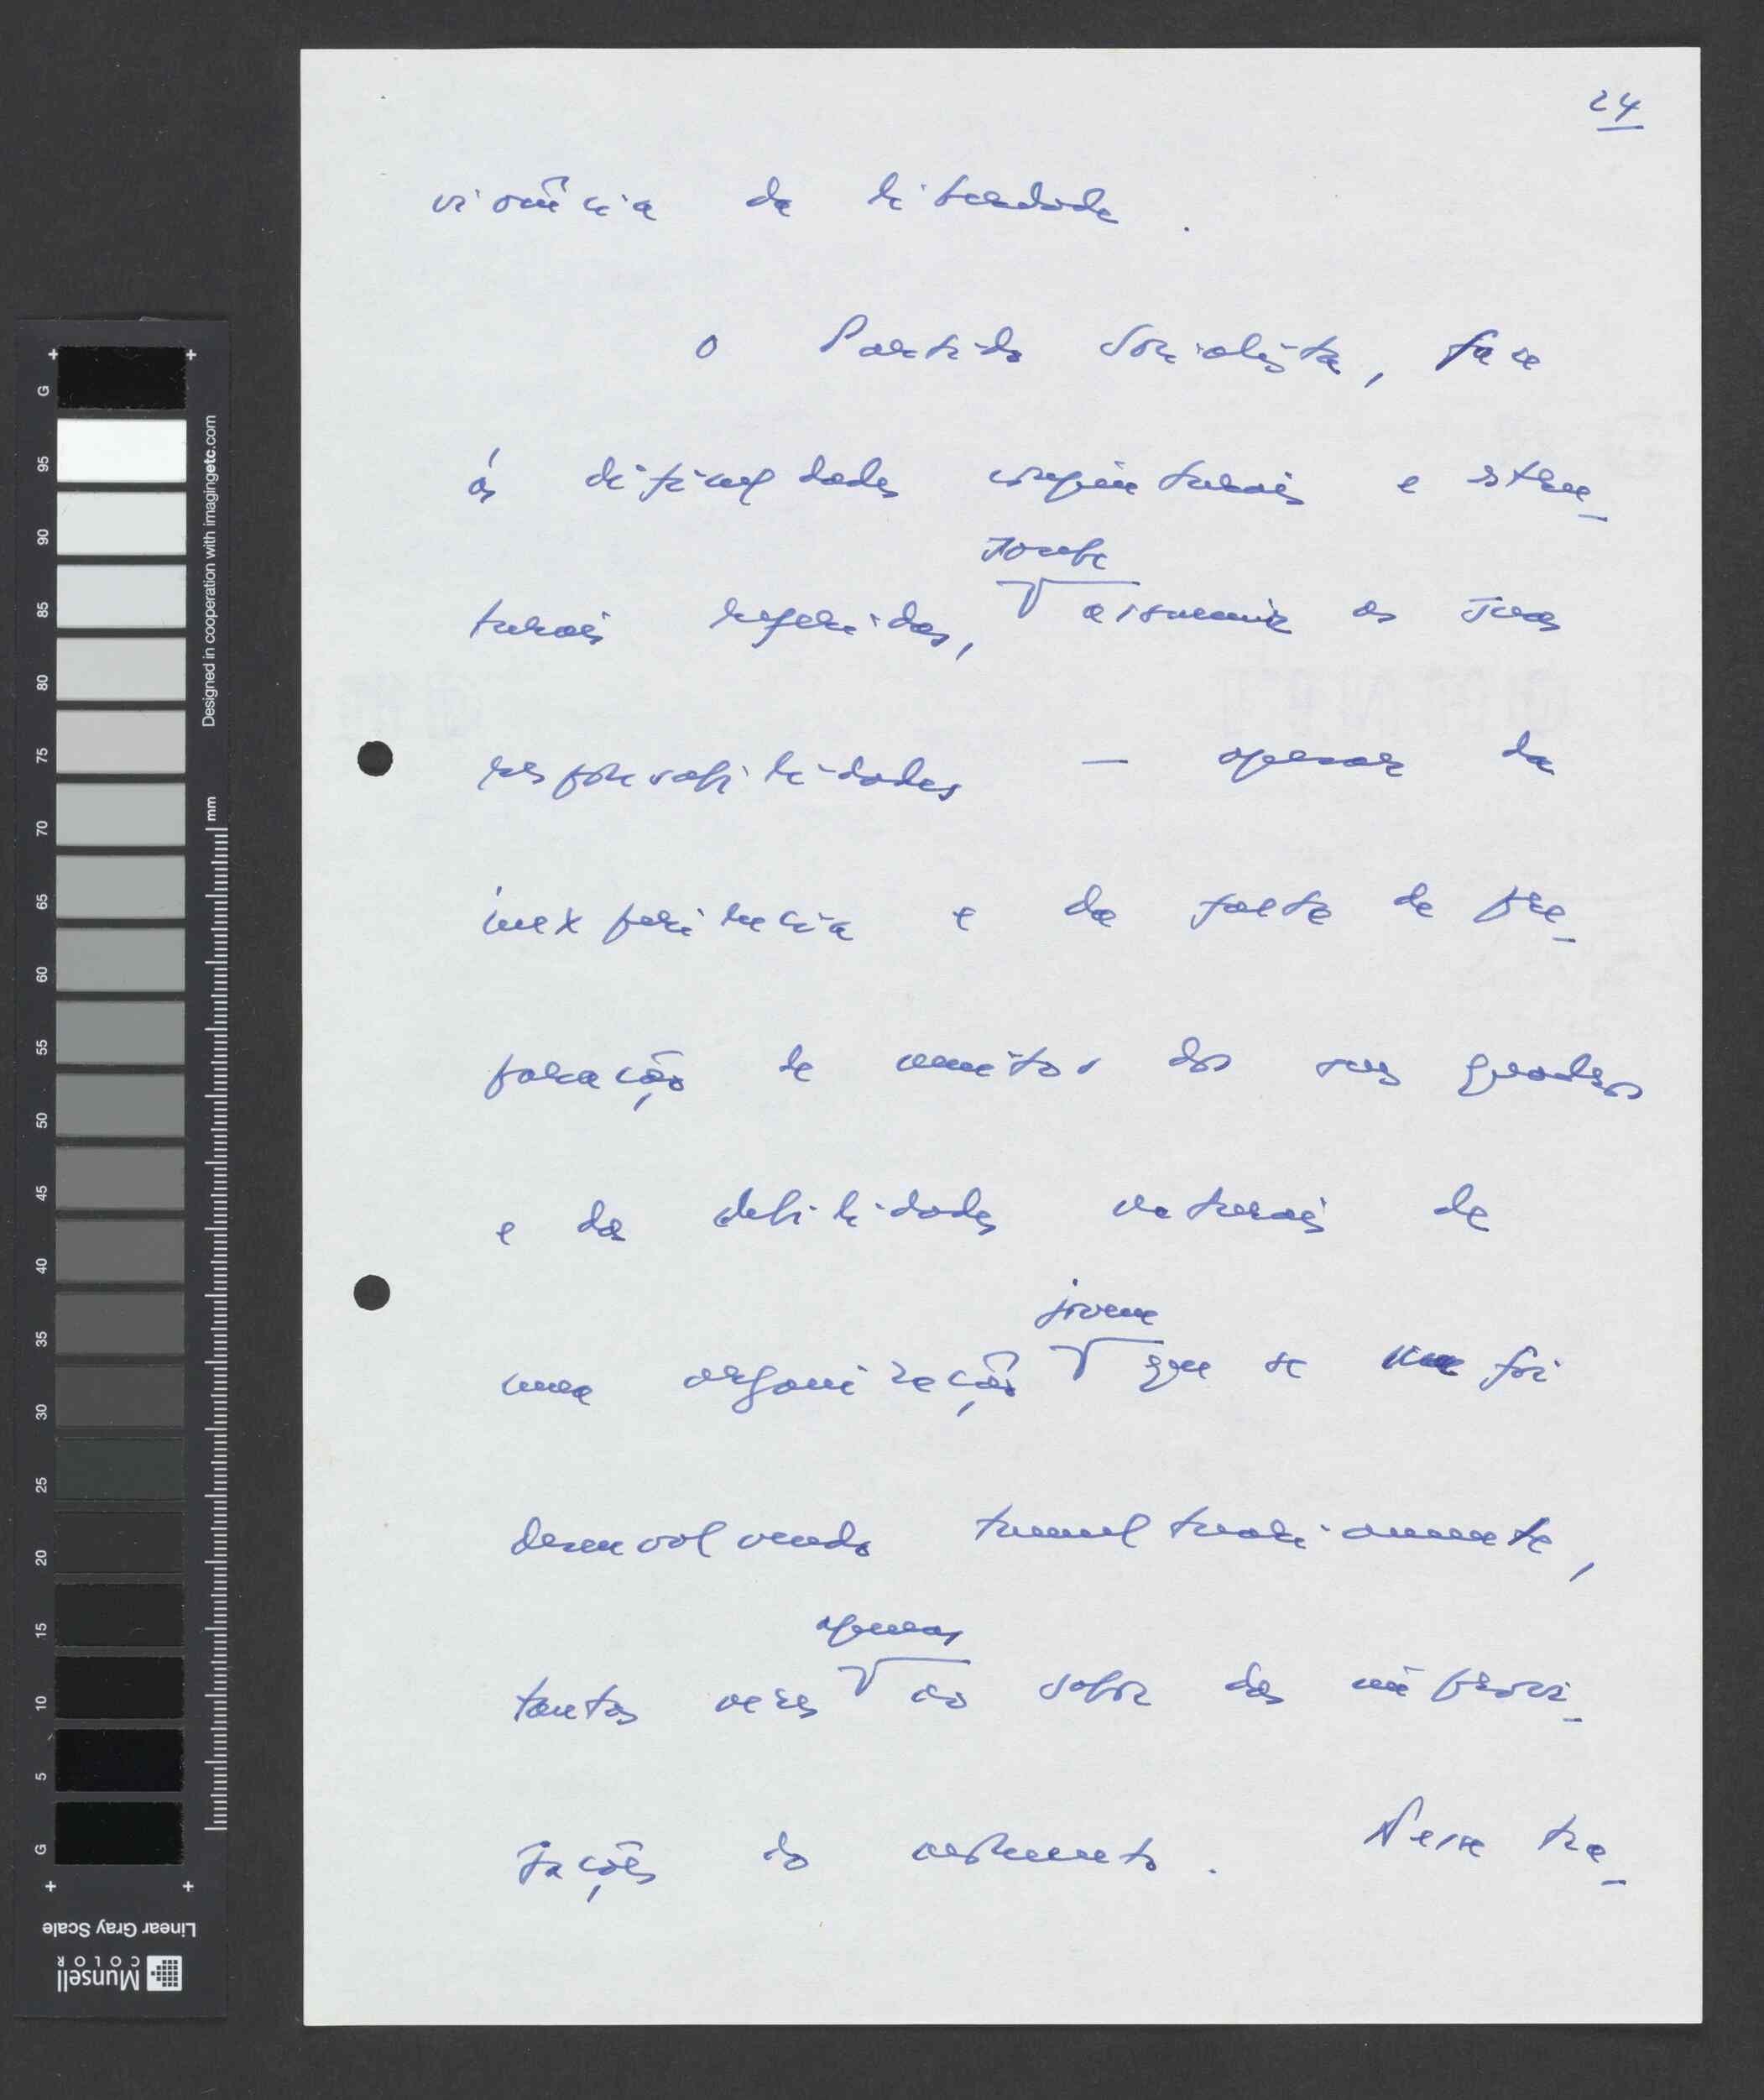 24
vivência da liberdade.
O Partido Socialista, face
às dificuldades conjunturais e estru-
soube
turais referidas, assumir as suas
responsabilidades — apesar da
inexperiência e da falta de pre-
paração de muitos dos seus quadros
e das debilidades naturais de
jovem
uma organização que se foi
desenvolvendo tumultuariamente,
apenas
tantas vezes ao sabor das improvi-
sações do momento. Nesse tra-
G
95
90
85
80
75
70
65
60
55
50
45
40
35
30
25
20
15
10
5
G
mm
Designed in cooperation with imagingetc.com
Linear Gray Scale
Munsell
COLOR